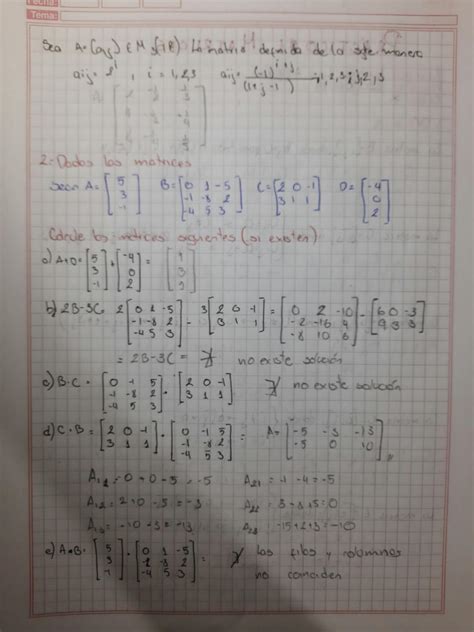 Fecha:
Tema:
Sea A=(aij) ∈ M3(IR) la matriz definida de la sgte manera
aij= 2^i, i=1,2,3 aij= (-1)^(i+j) / (i+j-1) 1,2,3; j,2,3
2.- Dados las matrices
Sean A= [5; 3; -1] B= [0 1 -5; -1 -8 2; -4 5 3] C= [2 0 -1; 3 1 1] D= [-4; 0; 2]
Calcule las matrices siguientes (si existen)
a) A+D= [5; 3; -1] + [-4; 0; 2] = [1; 3; 1]
b) 2B-3C 2[0 1 -5; -1 -8 2; -4 5 3] - 3[2 0 -1; 3 1 1] = [0 2 -10; -2 -16 4; -8 10 6] - [6 0 -3; 9 3 3]
= 2B-3C = ∄ no existe solución
c) B·C = [0 -1 5; -1 -8 2; -4 5 3] · [2 0 -1; 3 1 1] ∄ no existe solución
d) C·B = [2 0 -1; 3 1 1] · [0 -1 5; -1 -8 2; -4 5 3] = A= [-5 -3 -13; -5 0 10]
= 0+0-5 = -5 A21 = -1-4=-5
A12= 2+0-5=-3 A22 = 3-8+5=0
A13= -10-3=-13 A23 = -15+2+3=-10
e) A·B= [5; 3; -1] · [0 1 -5; -1 -8 2; -4 5 3] = ∄ las filas y columnas
no coinciden